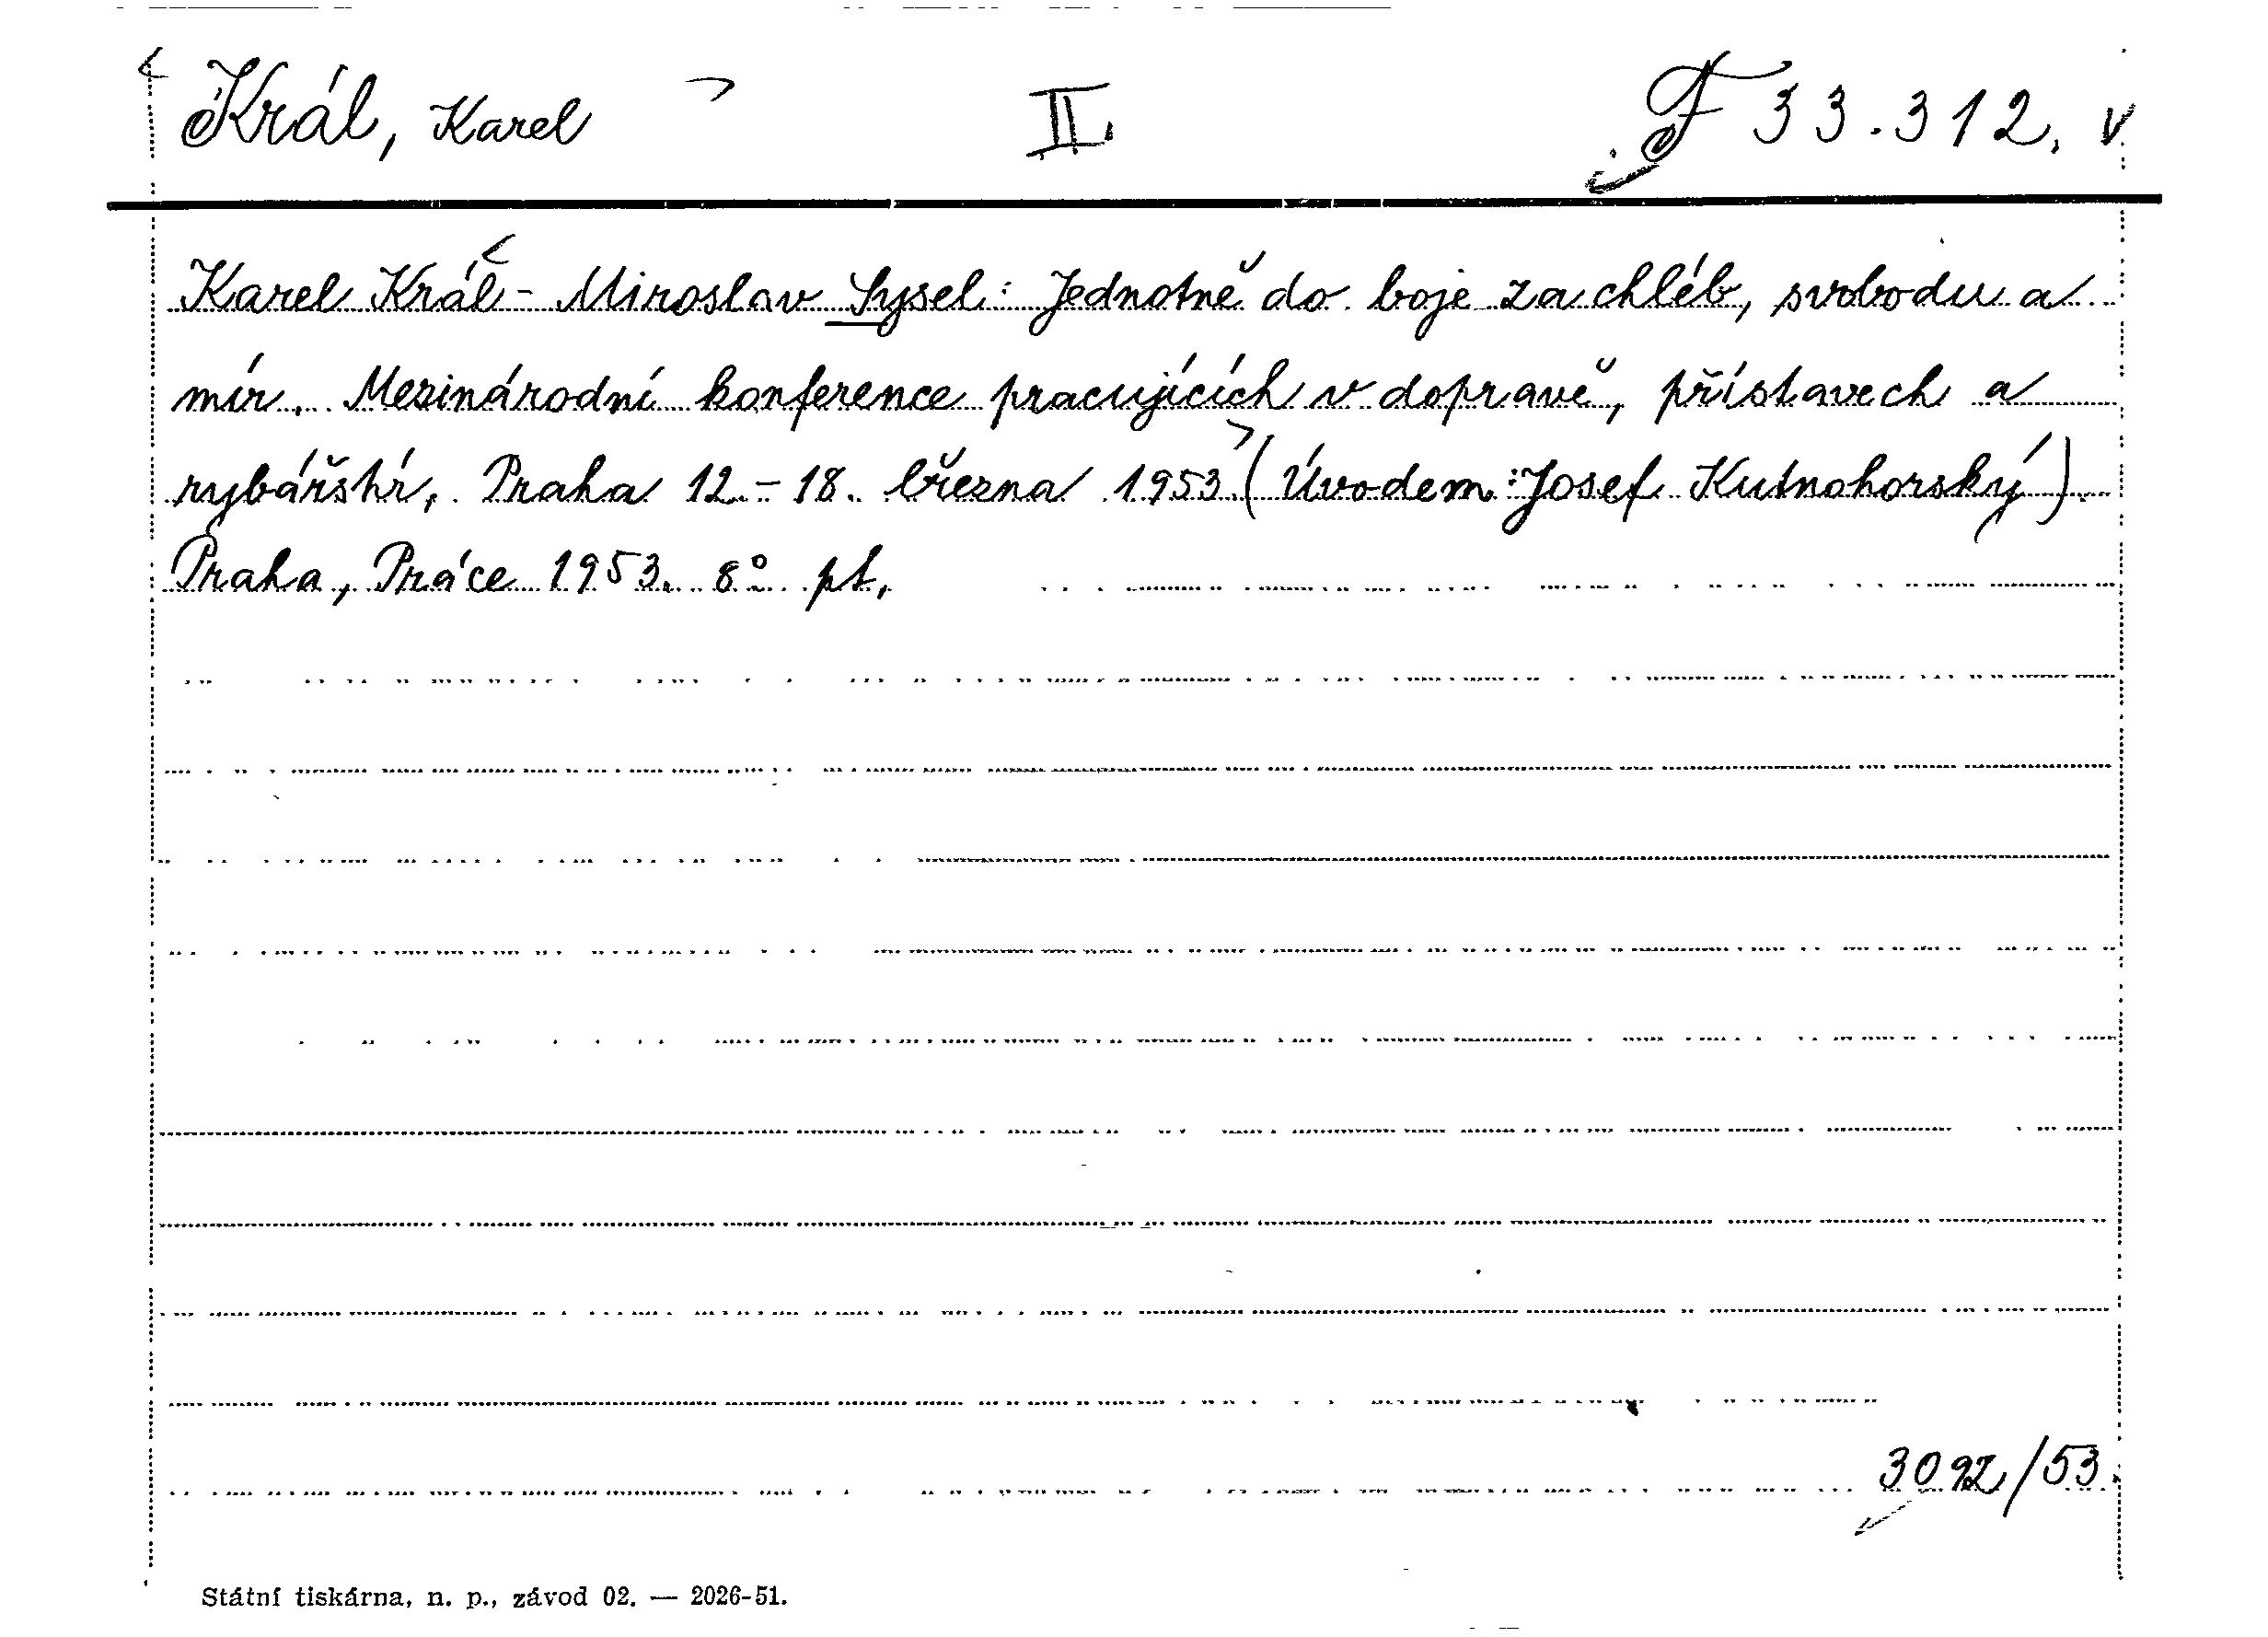 Král, Karel II. F 33.312. v
Karel Král - Miroslav Sysel: Jednotně do boje za chléb, svobodu a
mír. Mezinárodní konference pracujících v dopravě, přístavech a
rybářství, Praha 12. - 18. března 1953 (Úvodem: Josef Kutnohorský).
Praha, Práce 1953. 8° pt.
3092/53.
Státní tiskárna, n. p., závod 02. — 2026-51.